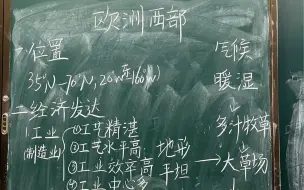 欧洲西部
一、位置
35°N-70°N,20°W
二、经济发达
1工业
(制造业)
①工艺精湛
②工艺水平高
③工业效率高
④工业中心多
地形
平坦
气候
暖湿
↓
多汁牧草
↓
→大草场